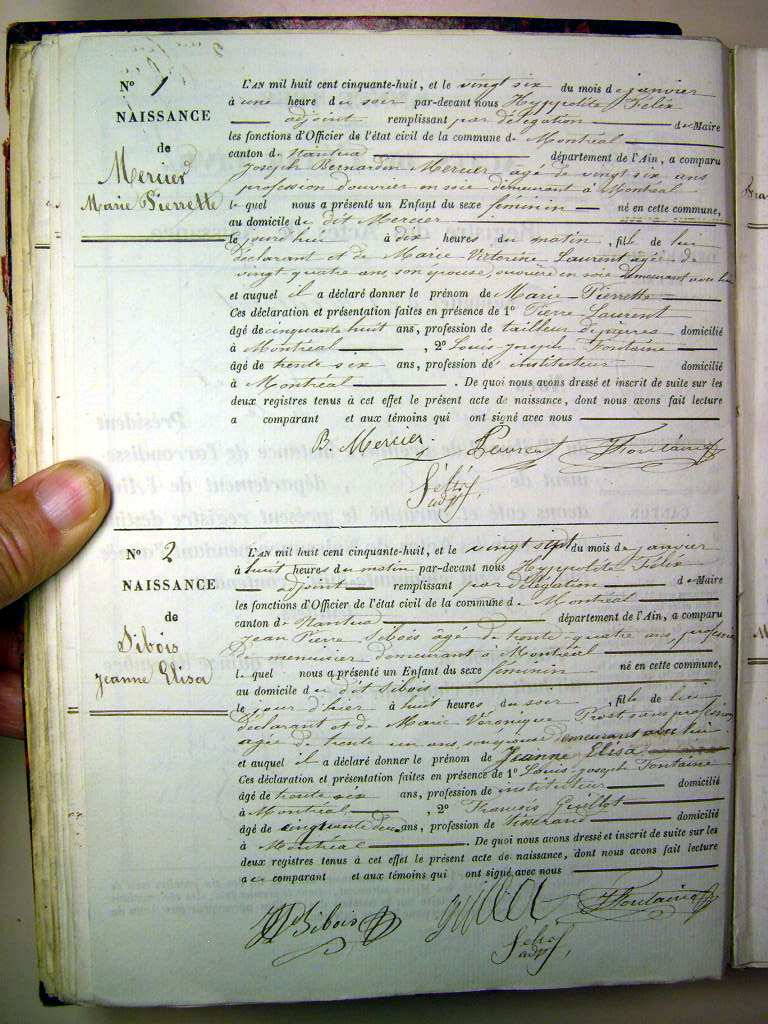 N° 1
NAISSANCE
de
Mercier
Marie Pierrette
L'AN mil huit cent cinquante-huit, et le vingt six du mois de janvier
à une heure du soir par-devant nous Hyppolite Félix
adjoint remplissant par délégation de Maire
les fonctions d'Officier de l'état civil de la commune de Montréal
canton de Nantua département de l'Ain, a comparu
Joseph Bernardin Mercier agé de vingt six ans
profession d'ouvrier en soie demeurant à Montréal
le quel nous a présenté un Enfant du sexe féminin né en cette commune,
au domicile du dit Mercier
le jourd'hui à dix heures du matin, fille de lui
déclarant et de Marie Victorine Laurent agée de
vingt quatre ans, son épouse, ouvrière en soie demeurant avec lui
et auquel il a déclaré donner le prénom de Marie Pierrette
Ces déclaration et présentation faites en présence de 1° Pierre Laurent
âgé de cinquante huit ans, profession de tailleur de pierres domicilié
à Montréal, 2° Louis Joseph Fontaine
âgé de trente six ans, profession d'instituteur domicilié
à Montréal. De quoi nous avons dressé et inscrit de suite sur les
deux registres tenus à cet effet le présent acte de naissance, dont nous avons fait lecture
a comparant et aux témoins qui ont signé avec nous
B. Mercier. Laurent JFontaine
Félix
adjt.
N° 2
NAISSANCE
de
Sibois
Jeanne Elisa
L'AN mil huit cent cinquante-huit, et le vingt sept du mois de janvier
à huit heures du matin par-devant nous Hyppolite Félix
adjoint remplissant par délégation de Maire
les fonctions d'Officier de l'état civil de la commune de Montréal
canton de Nantua département de l'Ain, a comparu
Jean Pierre Sibois âgé de trente quatre ans, profession
de menuisier demeurant à Montréal
le quel nous a présenté un Enfant du sexe féminin né en cette commune,
au domicile du dit Sibois
le jour d'hier à huit heures du soir, fille de lui
déclarant et de Marie Véronique Prost sans profession
agée de trente un ans, son épouse demeurant avec lui
et auquel il a déclaré donner le prénom de Jeanne Elisa
Ces déclaration et présentation faites en présence de 1° Louis Joseph Fontaine
âgé de trente six ans, profession de instituteur domicilié
à Montréal, 2° Francois Guillot
âgé de cinquante deux ans, profession de tisserand domicilié
à Montréal. De quoi nous avons dressé et inscrit de suite sur les
deux registres tenus à cet effet le présent acte de naissance, dont nous avons fait lecture
au comparant et aux témoins qui ont signé avec nous
Sibois JFontaine
Félix
adjt.